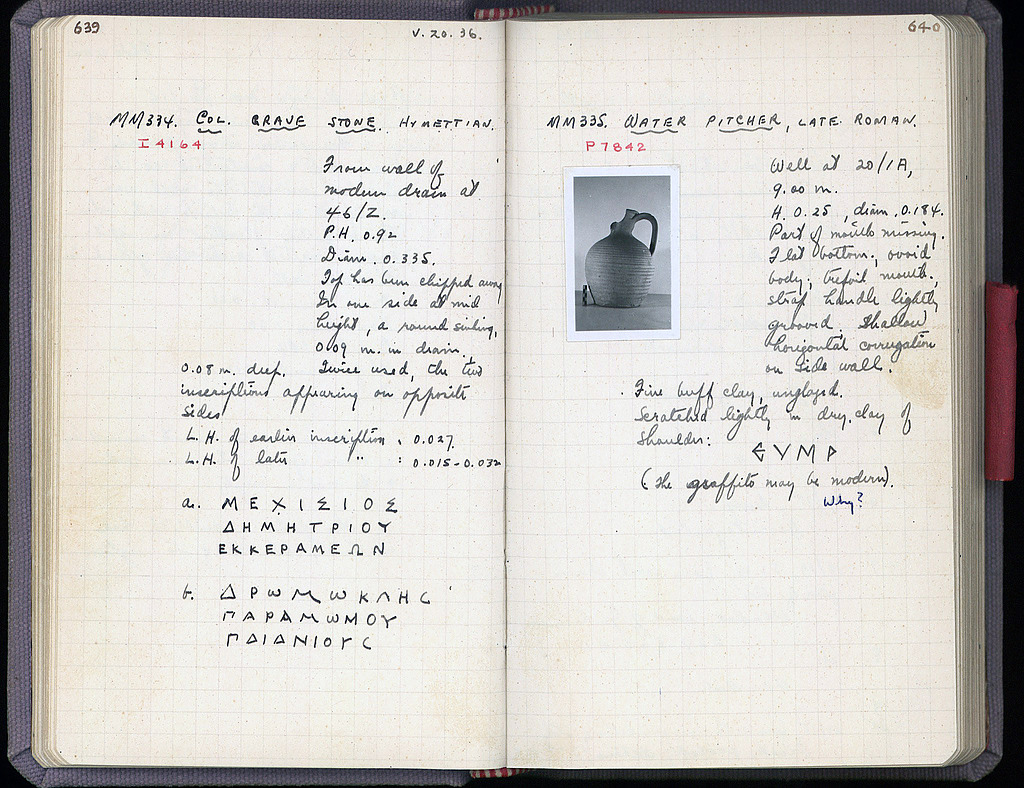 639
V. 20. 36.
MM334. COL. GRAVE STONE. HYMETTIAN.
I 4164
From wall of
modern drain at
46/Z.
P.H. 0.92
Diam. 0.335.
Top has been chipped away
In one side at mid
height, a round sinking,
0.09 m. in diam.,
0.08 m. deep. Twice used, the two
inscriptions appearing on opposite
sides
L.H. of earlier inscription : 0.027
L.H. of later " : 0.015-0.032
a. ΜΕΧΙΣΙΟΣ
ΔΗΜΗΤΡΙΟΥ
ΕΚΚΕΡΑΜΕΩΝ
b. ΔΡωΜωΚΛΗC
ΠΑΡΑΜωΜΟΥ
ΠΑΙΑΝΙΟΥC
640
MM335. WATER PITCHER, LATE ROMAN.
P 7842
Well at 20/ΙΑ,
9.00 m.
H. 0.25, diam. 0.184.
Part of mouth missing.
Flat bottom, ovoid
body; trefoil mouth,
strap handle lightly
grooved. Shallow
horizontal corrugation
on side wall.
Fine buff clay, unglazed.
Scratched lightly in dry clay of
shoulder:
ЄΥΜΡ
(The graffito may be modern).
Why?